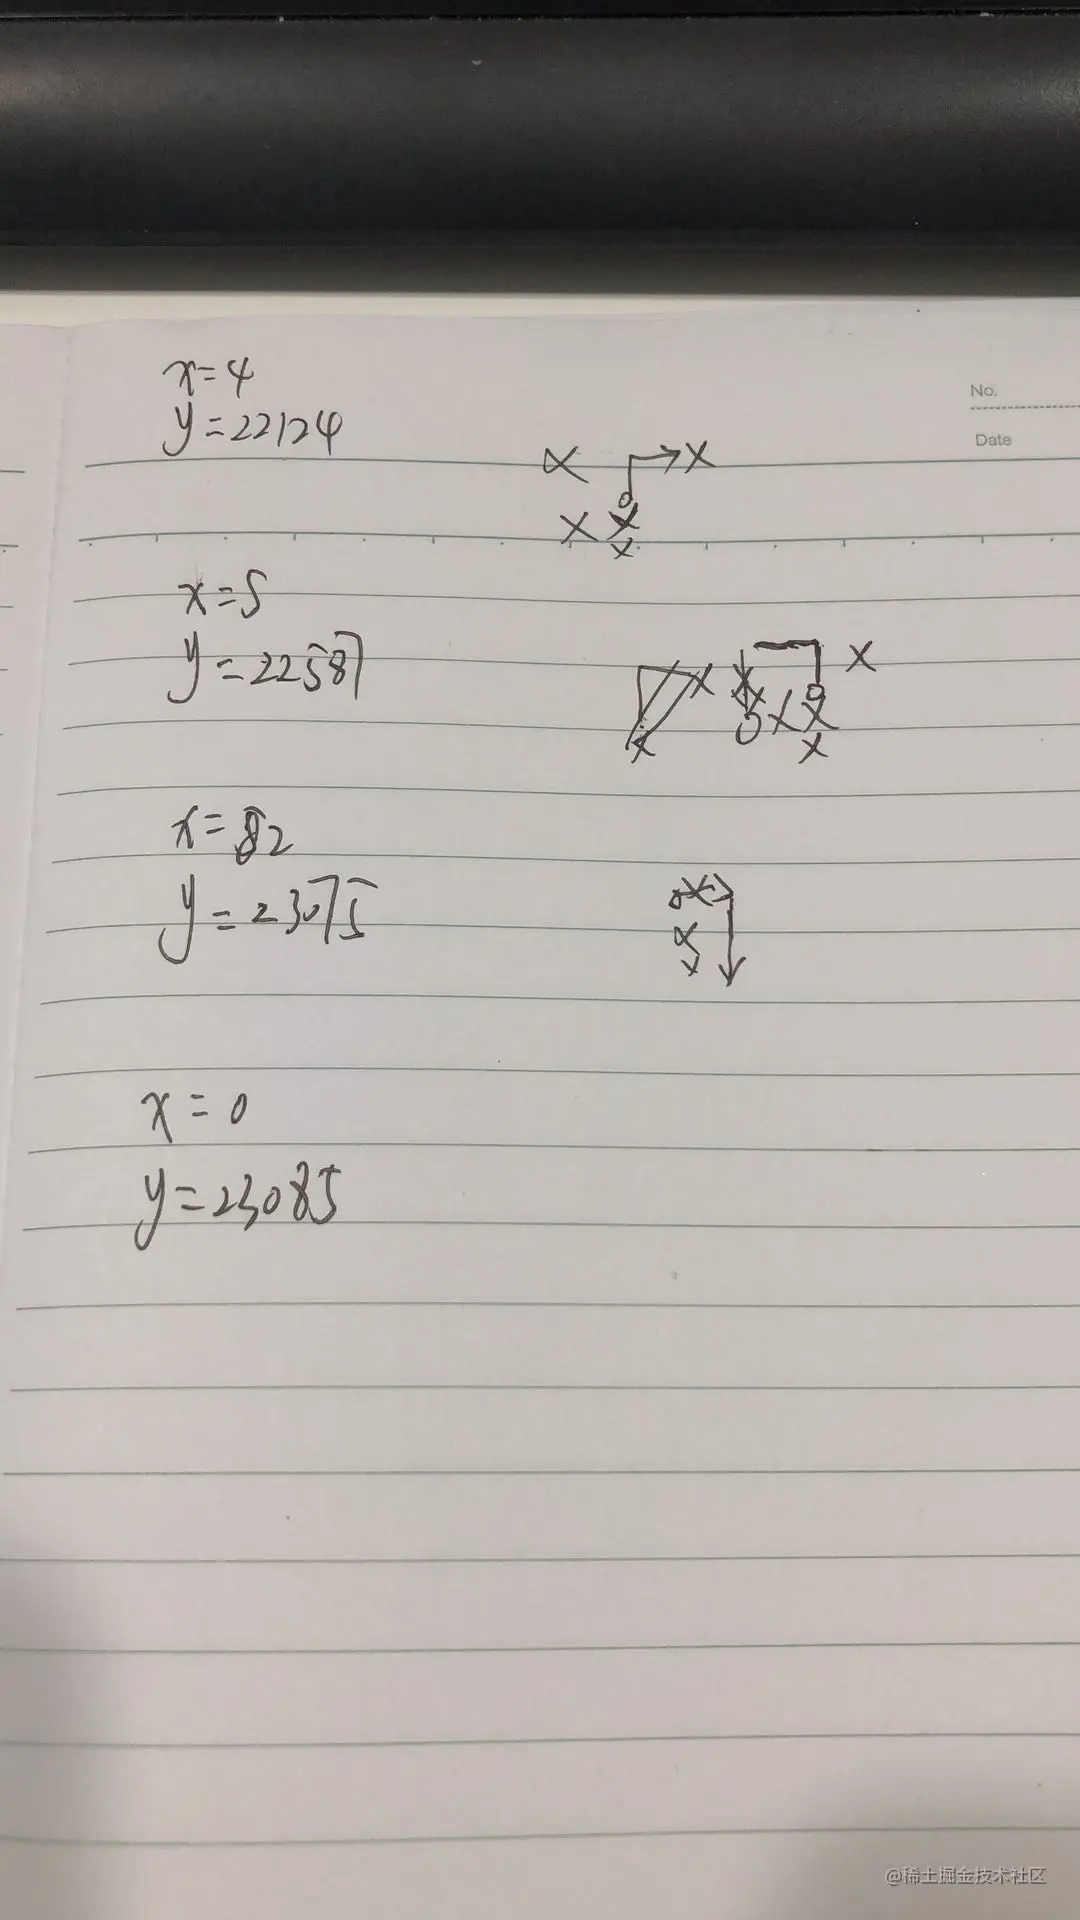 x=4
y=22124
No.
Date
x=5
y=22587
x=82
y=23075
x=0
y=23085
@稀土掘金技术社区